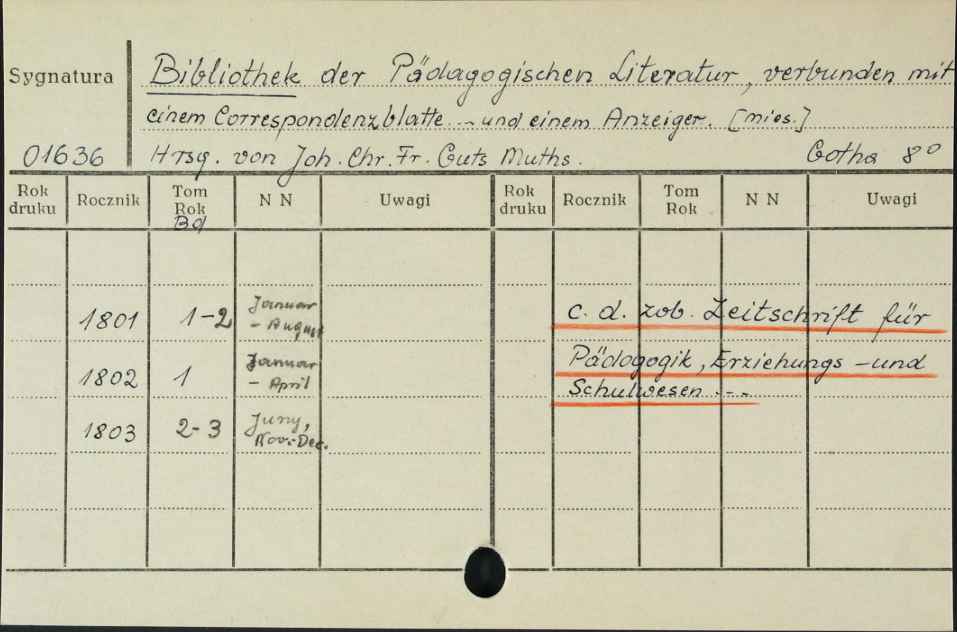 Sygnatura
Bibliothek der Pädagogischen Literatur, verbunden mit
einem Correspondenzblatte -- und einem Anzeiger. [mies.]
01636 Hrsg. von Joh. Chr. Fr. Guts Muths. Gotha 8°
Rok druku Rocznik Tom Rok Bd N N Uwagi Rok druku Rocznik Tom Rok N N Uwagi
1801 1-2 Januar - August
c. d. zob. Zeitschrift für
1802 1 Januar - April
Pädagogik, Erziehungs - und
Schulwesen ---
1803 2-3 Juny, Nov.-Dec.